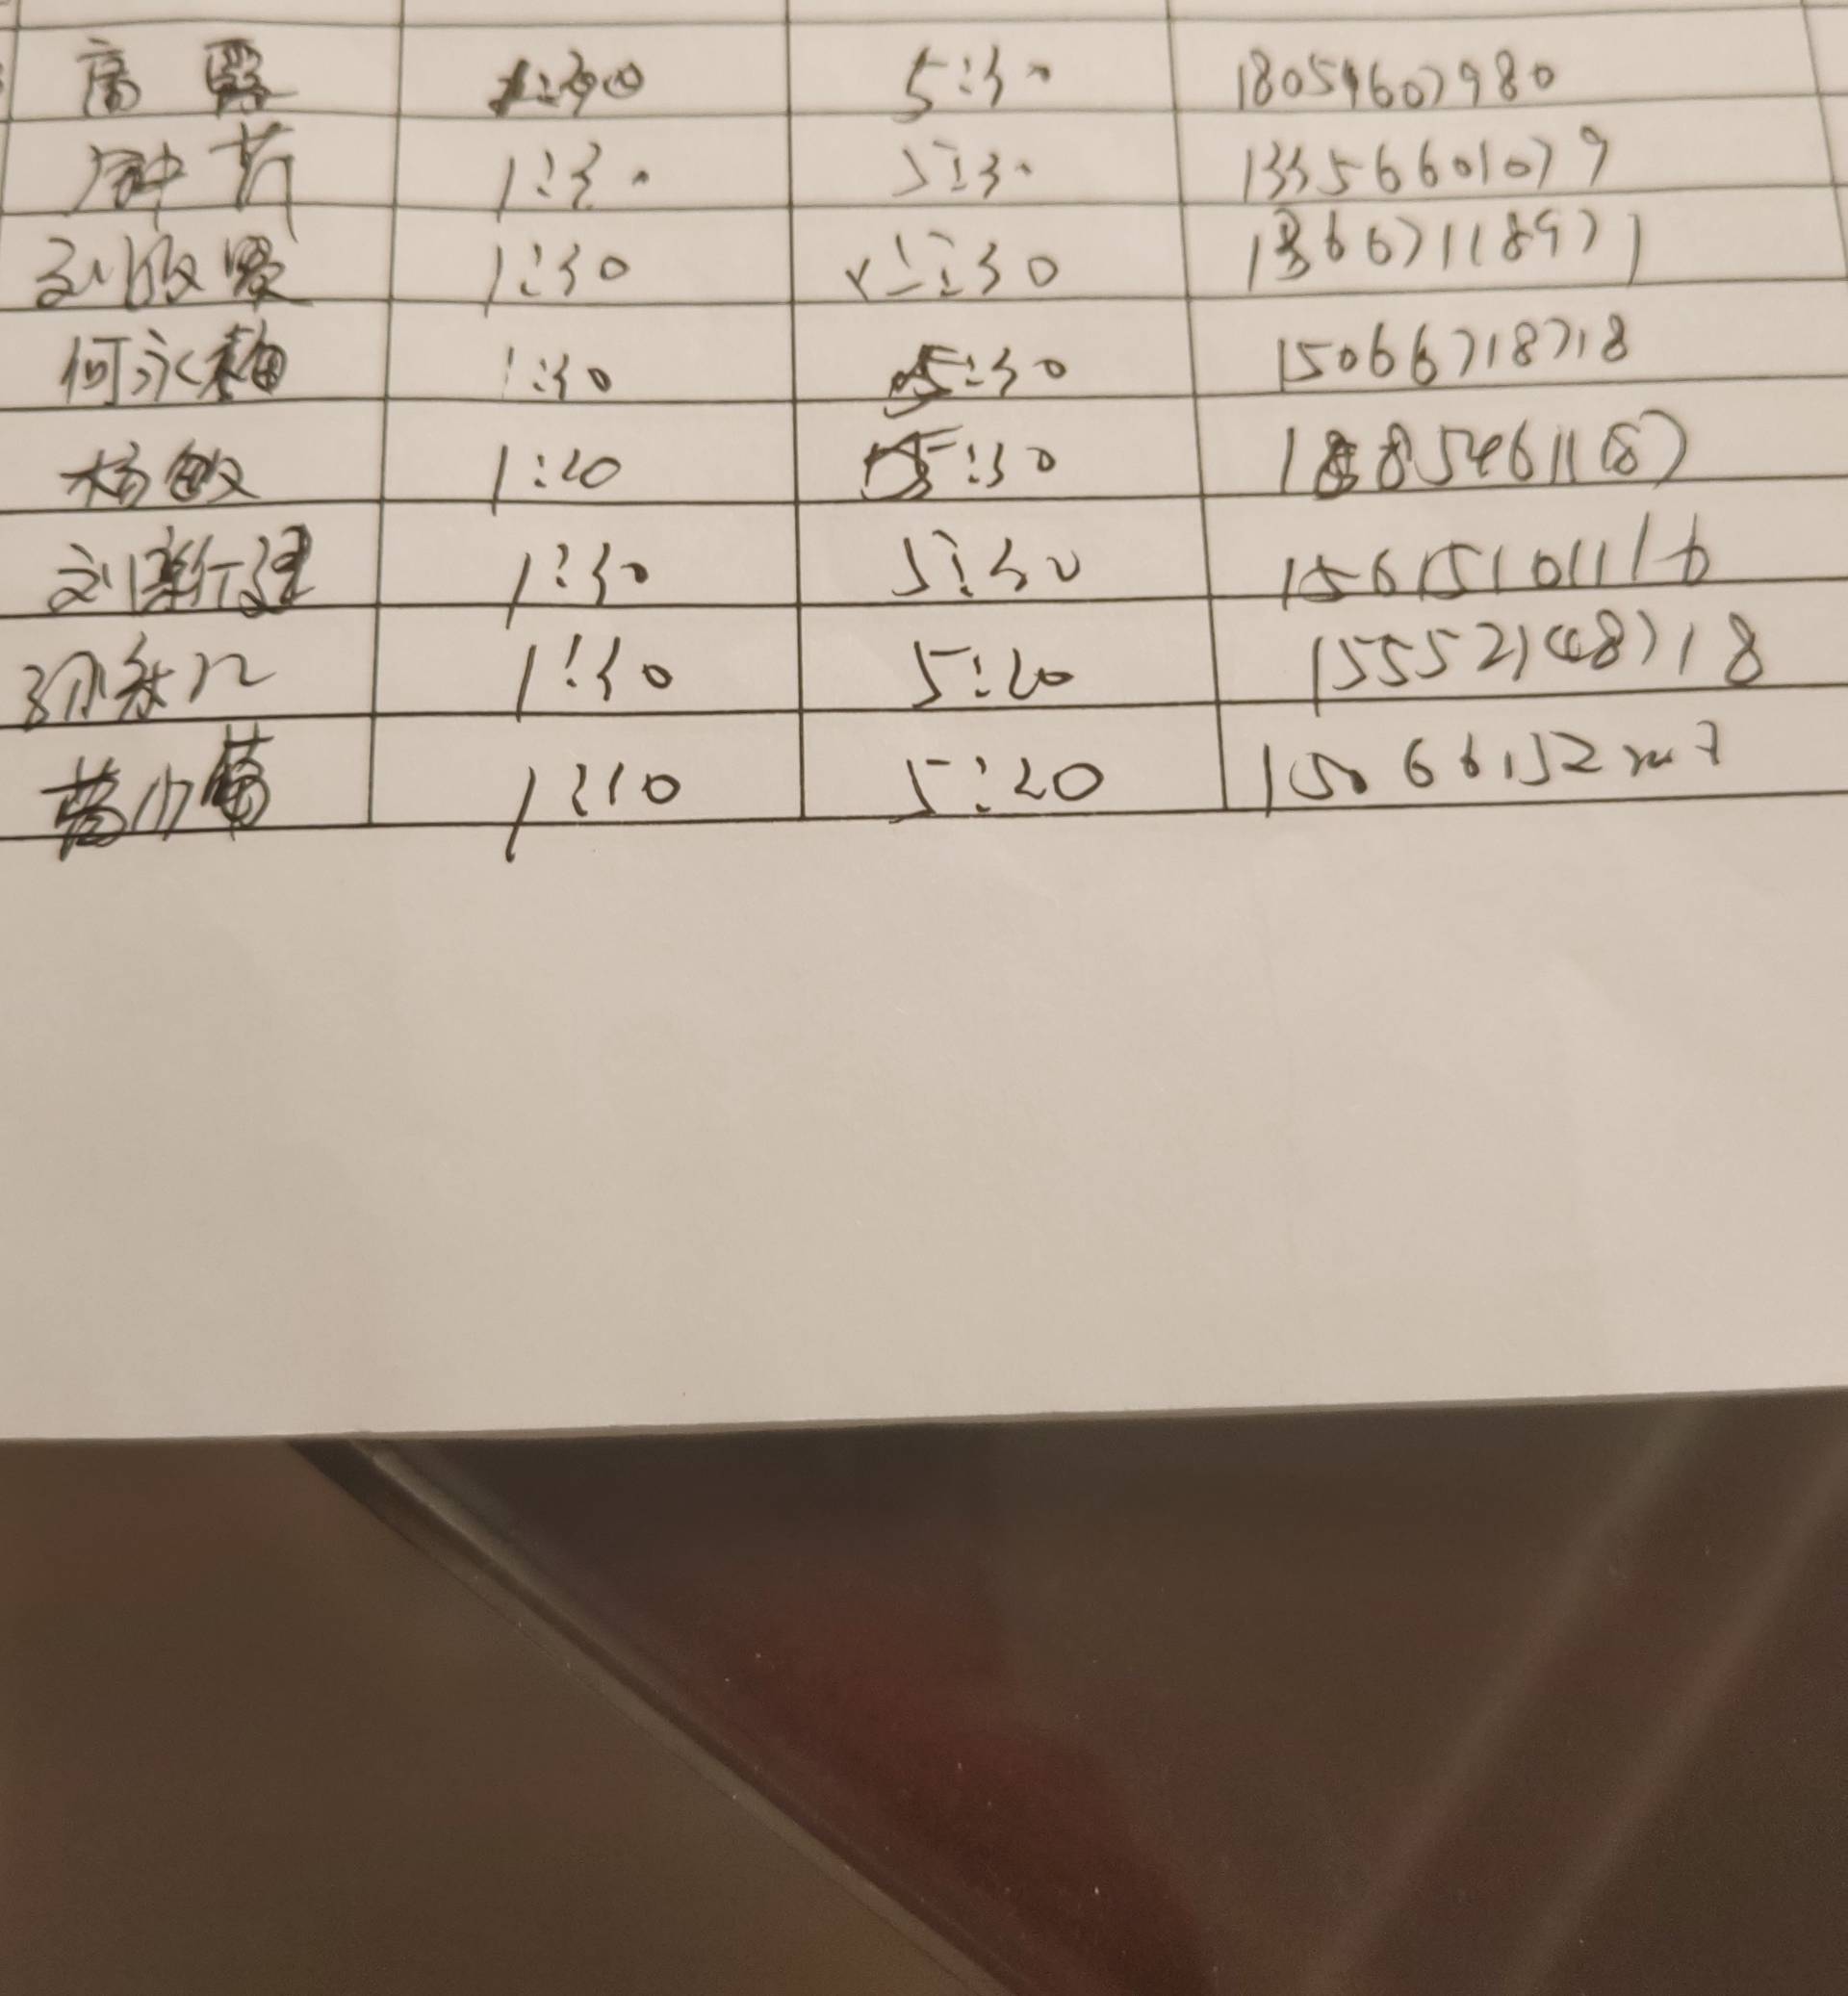 高 1:30 5:30 18054607980
钟芳 1:30 5:30 13356601079
刘 1:30 5:30 13667118971
何永梅 1:30 5:30 15066718718
杨敏 1:20 5:30 18854611187
刘新建 1:30 5:30 15615101116
孙 1:30 5:20 15552148718
1:10 5:20